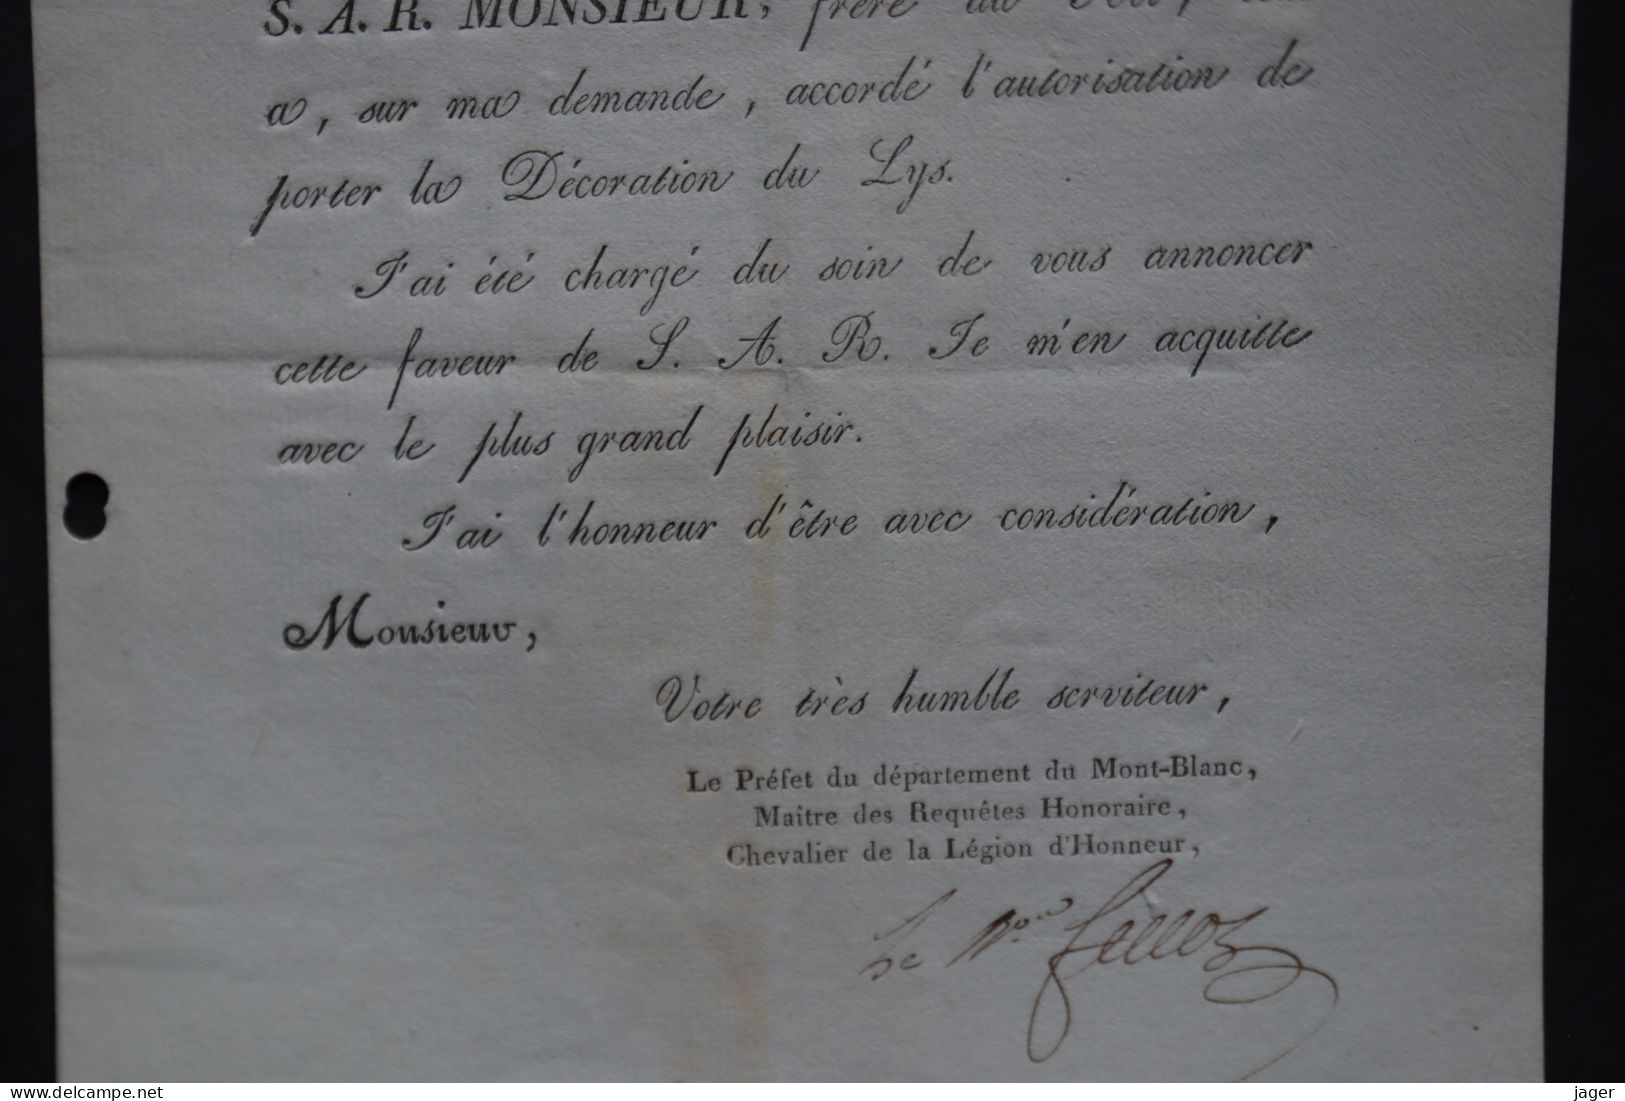 S. A. R. MONSIEUR, frère du Roi,
a, sur ma demande, accordé l'autorisation de
porter la Décoration du Lys.
J'ai été chargé du soin de vous annoncer
cette faveur de S. A. R. Je m'en acquitte
avec le plus grand plaisir.
J'ai l'honneur d'être avec considération,
Monsieur,
Votre très humble serviteur,
Le Préfet du département du Mont-Blanc,
Maître des Requêtes Honoraire,
Chevalier de la Légion d'Honneur,
Le
www.delcampe.net
jager